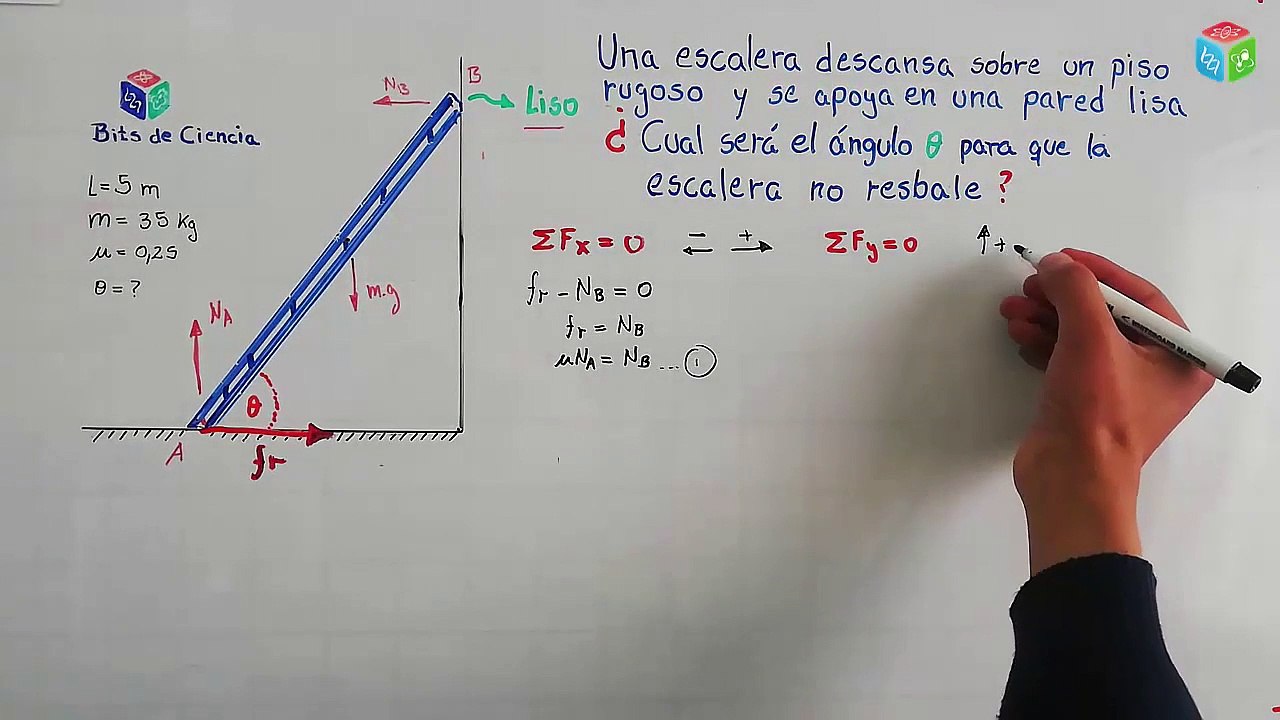 Bits de Ciencia
L=5 m
m= 35 Kg
μ= 0,25
θ= ?
NB
B
Liso
NA
m.g
θ
A
fr
Una escalera descansa sobre un piso
rugoso y se apoya en una pared lisa
¿Cual será el ángulo θ para que la
escalera no resbale?
ΣFx = 0 - +
fr - NB = 0
fr = NB
μNA = NB ... 1
ΣFy = 0 +